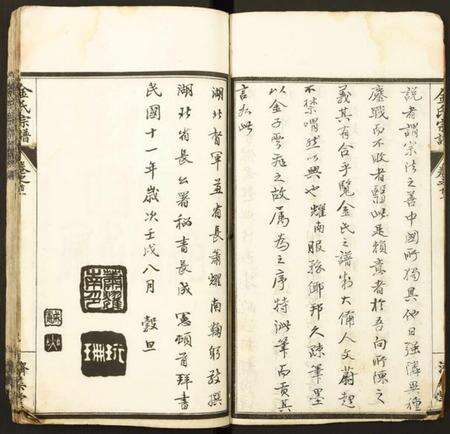 說者謂宗法之善中國所獨具他日強鄰異種
鏖戰而不敗者繄此是賴意者於吾向所陳之
義其有合乎覽金氏之譜彬彬大備人文蔚起
不禁喟然以興也耀南服務鄉邦久疎筆墨
以金子要在之故屬為之序特泚筆而貢其
言於此
湖北督軍兼省長蕭耀南鞠躬敬撰
湖北省長公署秘書長成憲頓首拜書
民國十一年歲次壬戌八月穀旦
金氏宗譜
金氏宗譜